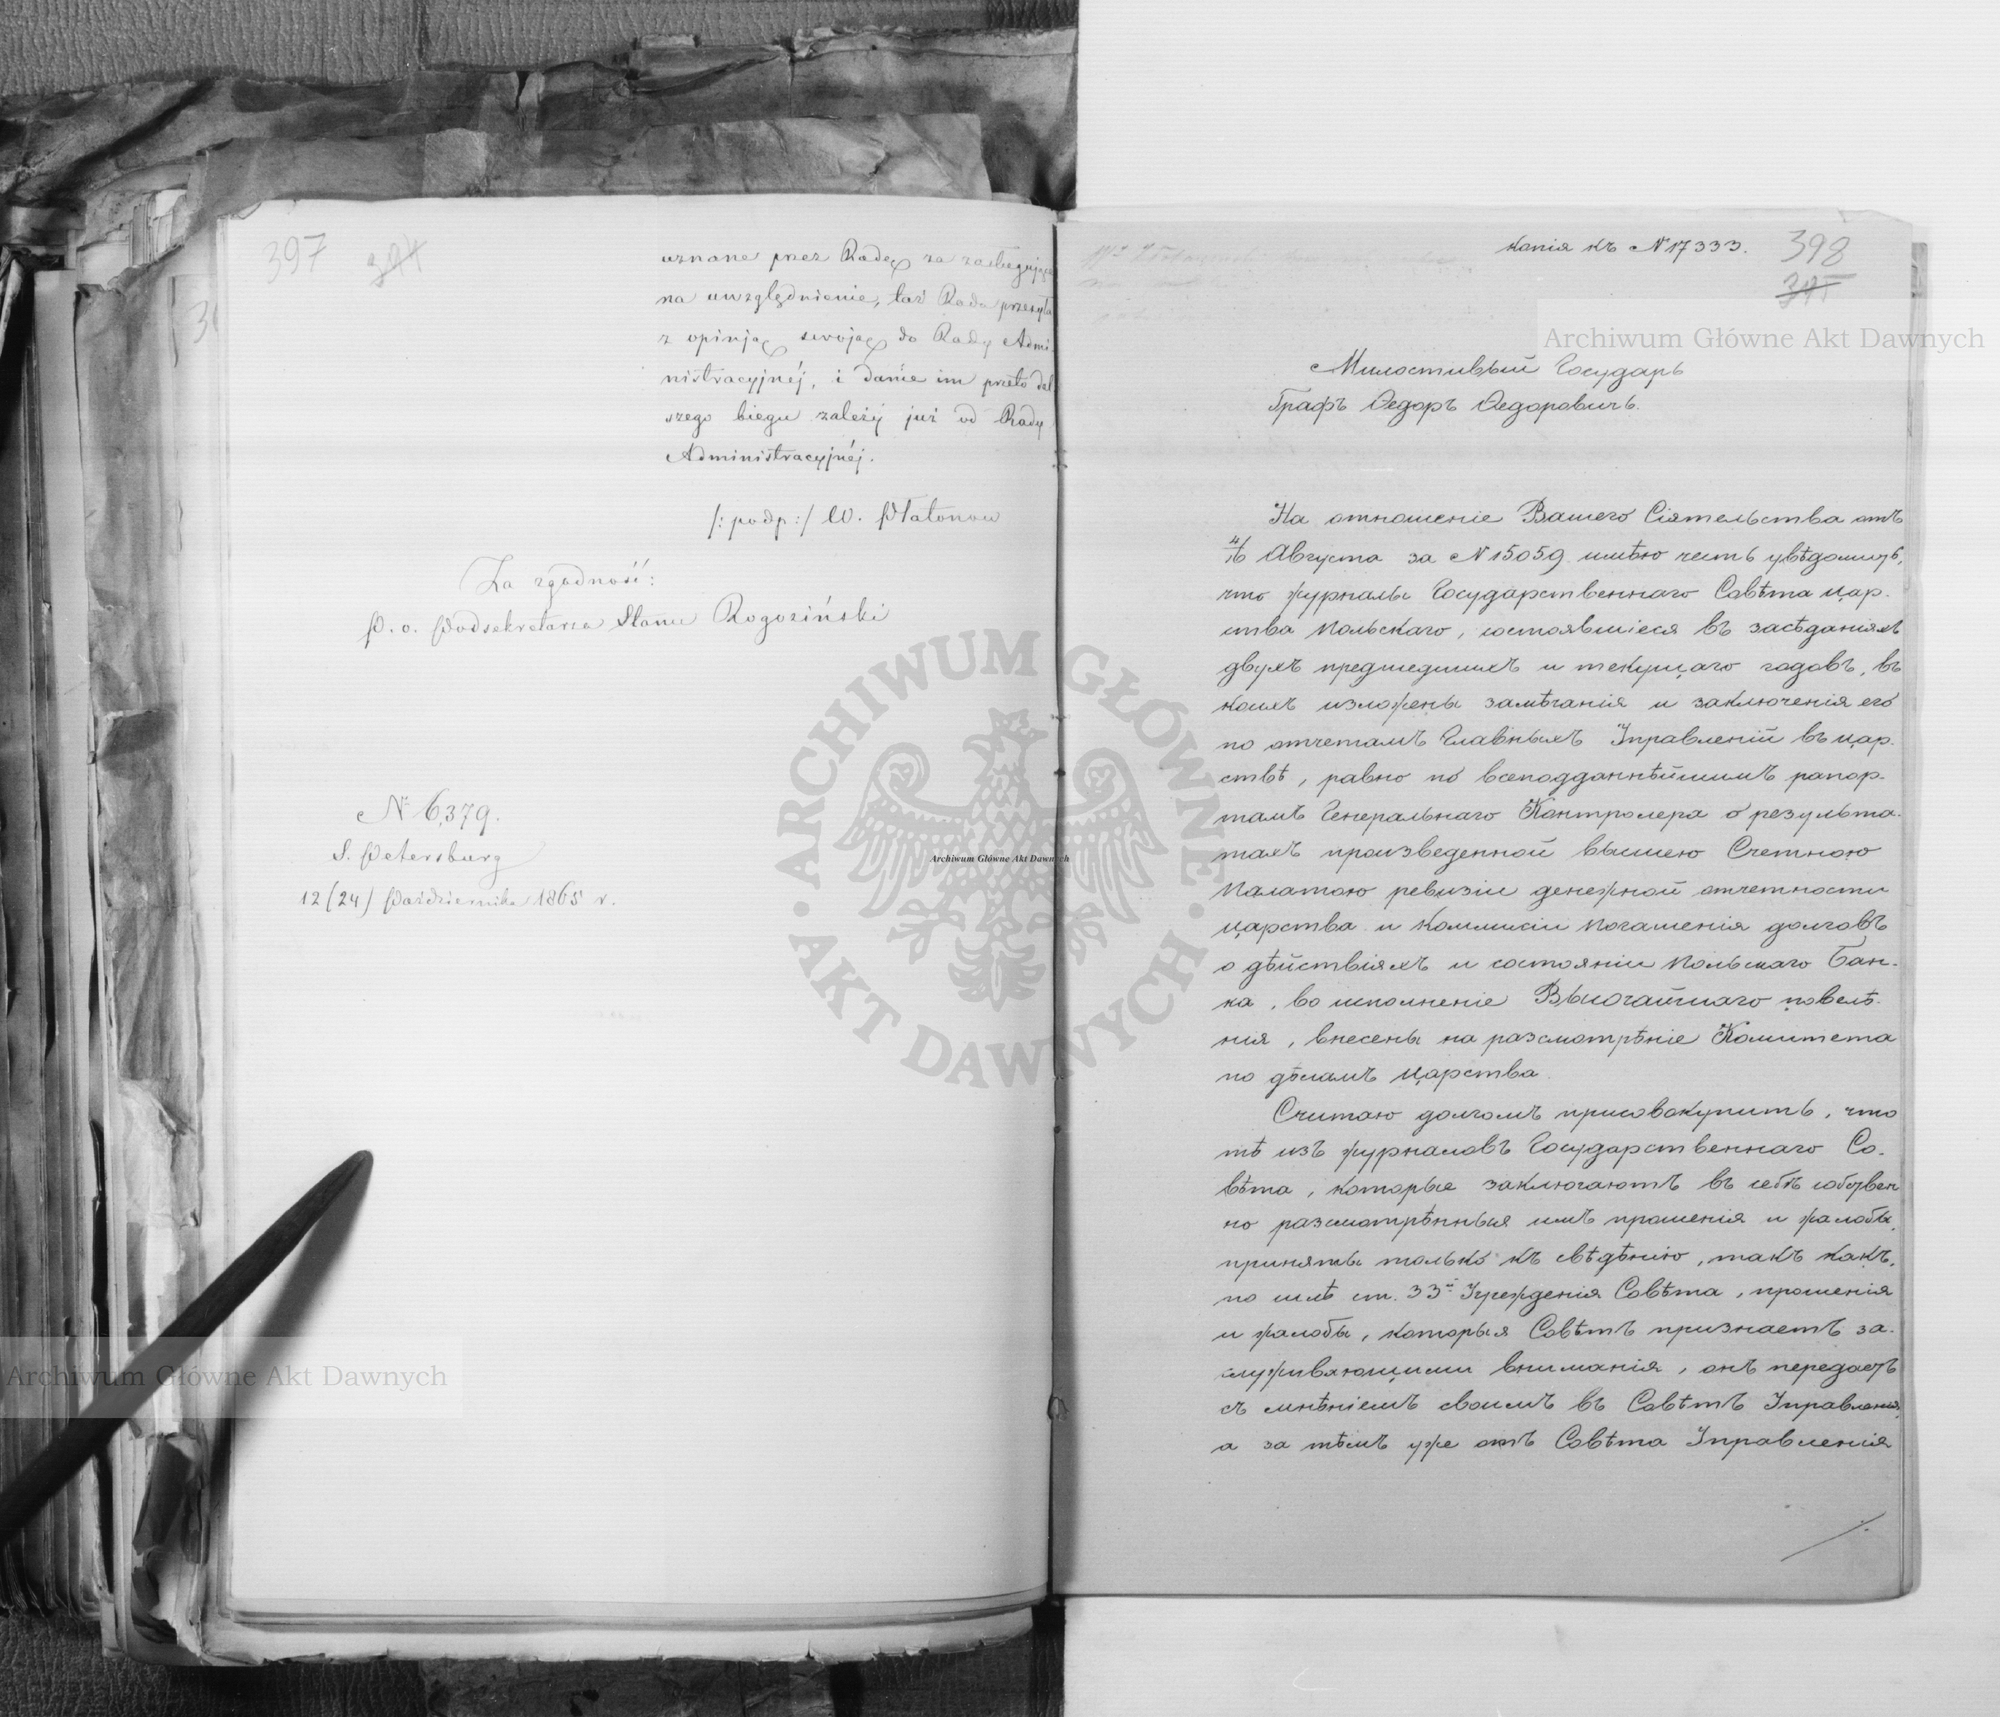 397
374
uznane przez Radę za zasługujące
na uwzględnienie, taż Rada przesyła
z opinją swoją do Rady Admi-
nistracyjnéj, i danie im przeto dal
szego biegu zależy już od Rady
Administracyjnéj.
/: podp :/ W. Płatonow
Za zgodność:
P. o. Podsekretarza Stanu Rogoziński
№ 6,379.
S. Petersburg
12 (24) Października 1865 r.
копія къ № 17333.
398
375
Милостивый Государь
Графъ Ѳедоръ Ѳедоровичъ.
На отношеніе Вашего Сіятельства отъ
4/16 Августа за № 15059 имѣю честь увѣдомить,
что журналы Государственнаго Совѣта Цар-
ства Польскаго, состоявшіеся въ засѣданіяхъ
двухъ предшедшихъ и текущаго годовъ, въ
коихъ изложены замѣчанія и заключенія его
по отчетамъ Главныхъ Управленій въ Цар-
ствѣ, равно по всеподданнѣйшимъ рапор-
тамъ Генеральнаго Контролера о результа-
тахъ произведенной Высшею Счетною
Палатою ревизіи денежной отчетности
Царства и Коммисіи Погашенія долговъ
о дѣйствіяхъ и состояніи Польскаго Бан-
ка, во исполненіе Высочайшаго повелѣ-
нія, внесены на разсмотрѣніе Комитета
по дѣламъ Царства.
Считаю долгомъ присовокупить, что
тѣ изъ журналовъ Государственнаго Со-
вѣта, которые заключаютъ въ себѣ собствен
но разсмотрѣнныя имъ прошенія и жалобы,
приняты только къ свѣдѣнію, такъ какъ,
по силѣ ст. 33й Учрежденія Совѣта, прошенія
и жалобы, которыя Совѣтъ признаетъ за-
служивающими вниманія, онъ передаетъ
съ мнѣніемъ своимъ въ Совѣтъ Управленія,
а за тѣмъ уже отъ Совѣта Управленія
Archiwum Główne Akt Dawnych
Archiwum Główne Akt Dawnych
Archiwum Główne Akt Dawnych
ARCHIWUM GŁÓWNE AKT DAWNYCH